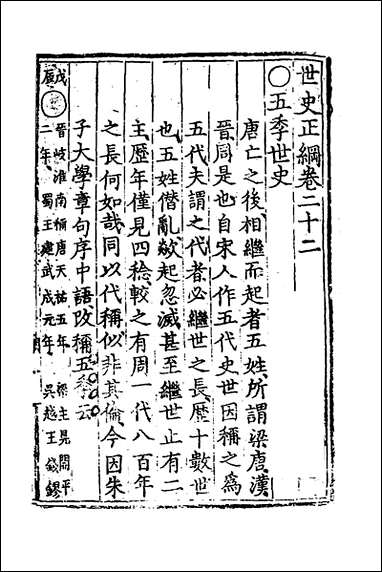 世史正綱卷二十二
○五季世史
唐亡之後相繼而起者五姓所謂梁唐漢
晉周是也自宋人作五代史世因稱之爲
五代夫謂之代者必繼世之長歷十數世
也五姓僭亂欻起忽滅甚至繼世止有二
主歷年僅見四稔較之有周一代八百年
之長何如哉同以代稱似非其倫今因朱
子大學章句序中語改稱五季云
戊辰
晉岐淮南稱唐天祐五年 梁主晃開平
二年 蜀王建武成元年 吳越王錢鏐